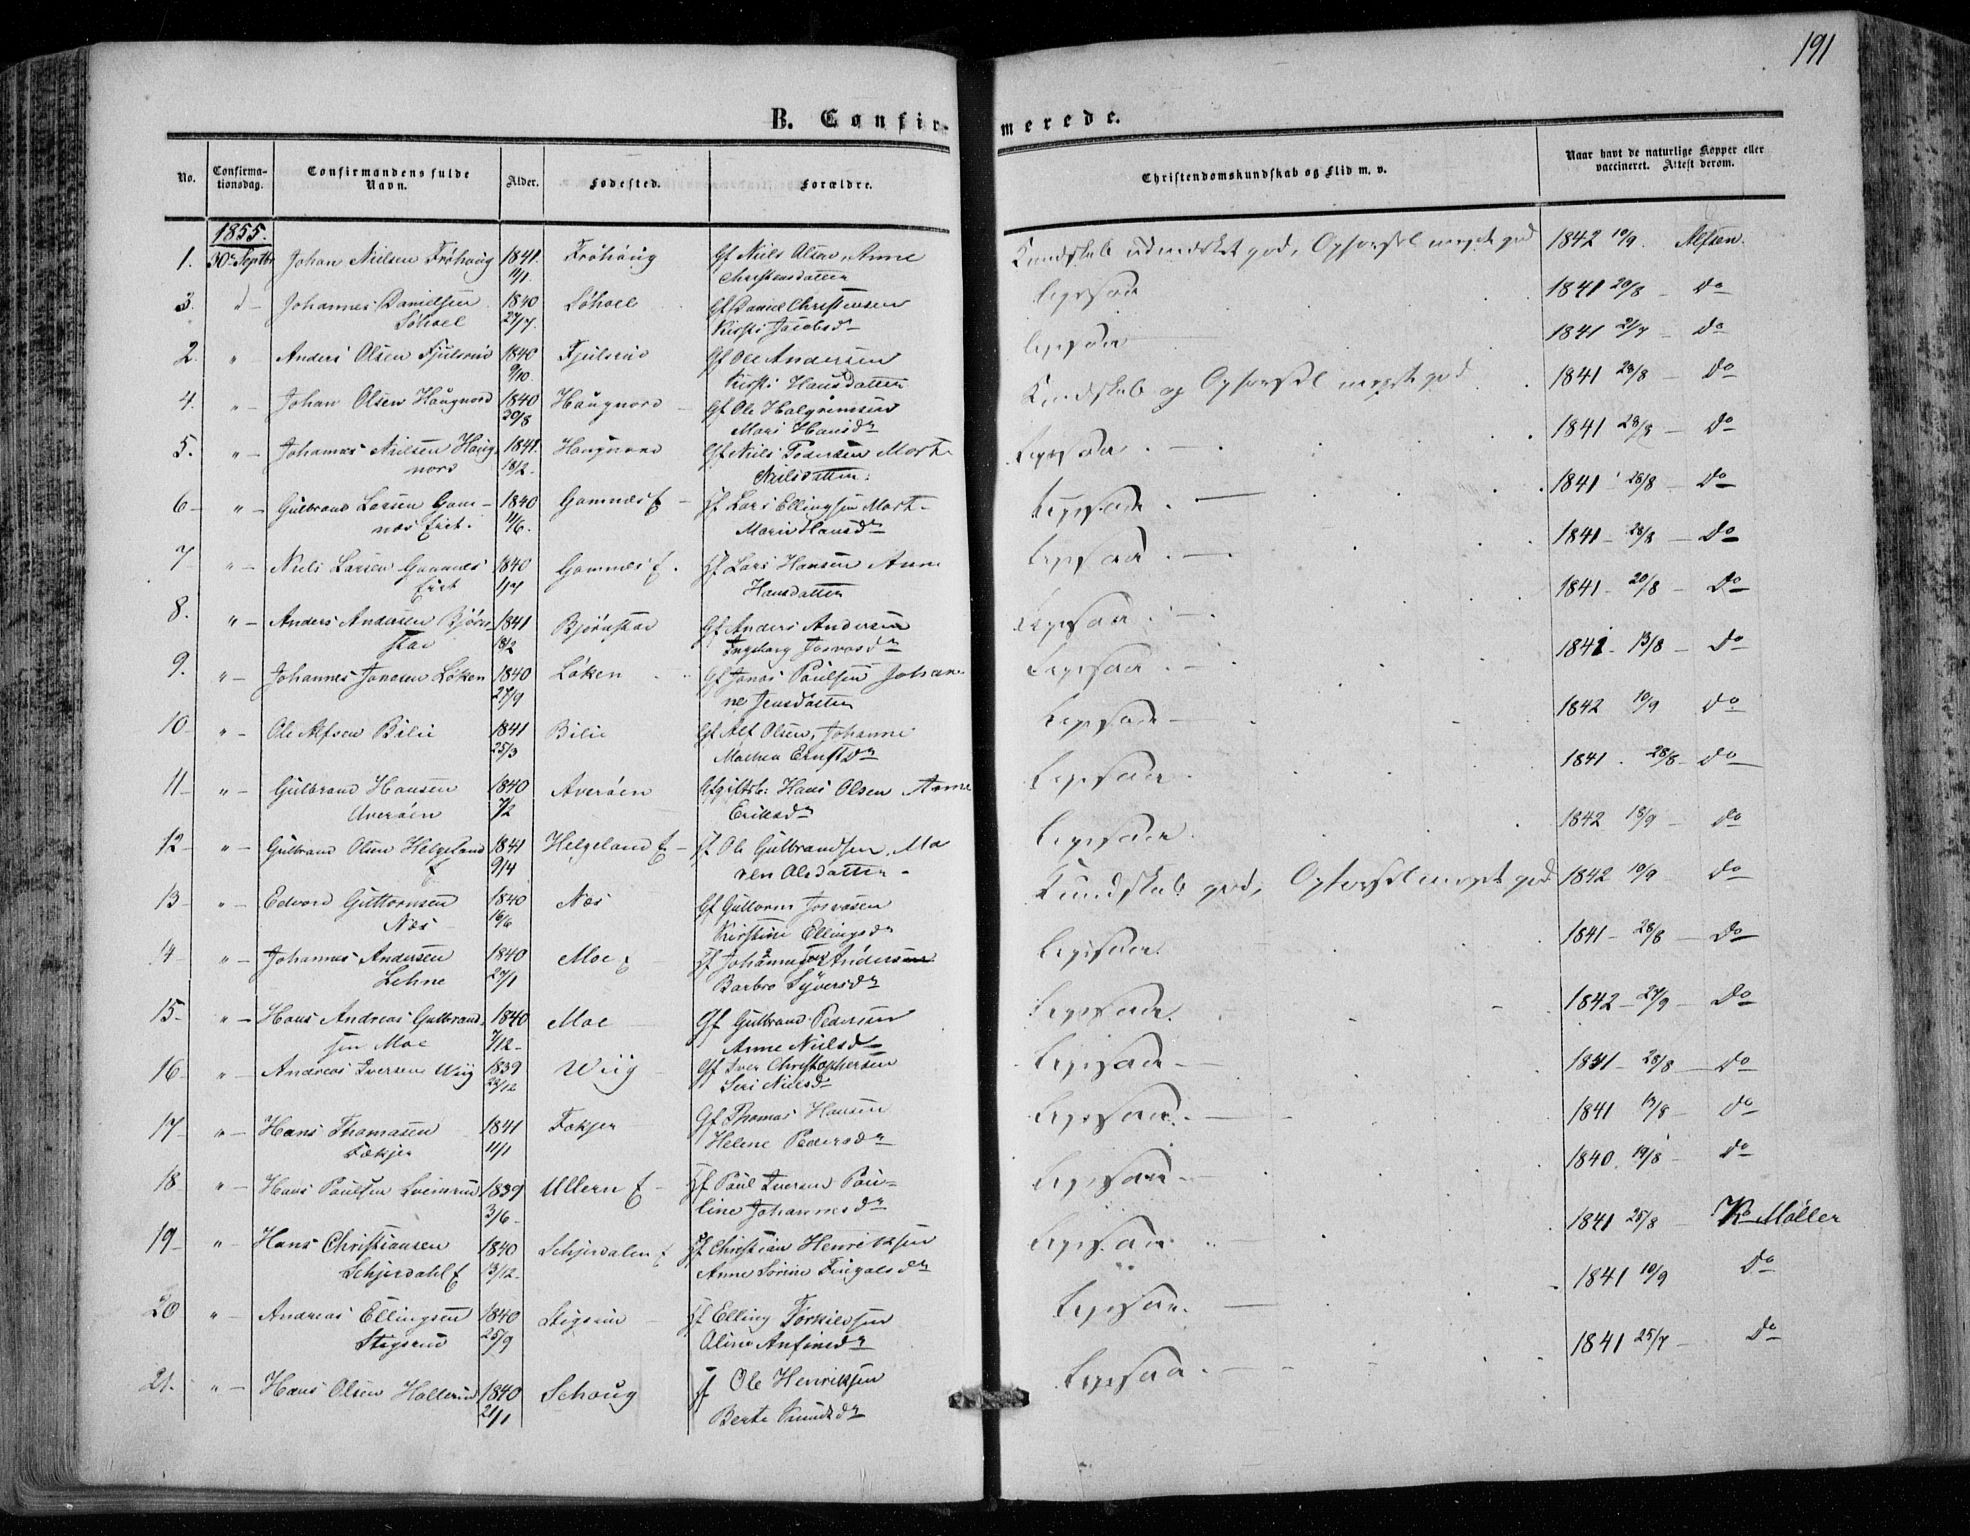 191
B. Confirmerede.
No. Confirmationsdag. Confirmandens fulde Navn. Alder. Fødested. Forældre. Christendomskundskab og Flid m. v. Naar havt de naturlige Kopper eller vaccineret. Attest derom.
1855.
1. 30te Septbr Johan Nielsen Fröhaug 1841. 11/1 Fröhaug Gf Niels Olsen, Anne Christensdatter Kundskab udmærket god, Opførsel meget god 1842 10/9. Alfsen.
3. d - Johannes Danielsen Löhoel 1840 27/7. Löhoel Gf Daniel Christensen Kirsti Jacobsdr Ligesaa 1841 20/8 - Do
2. " Anders Olsen Fjulsrud 1840 9/10. Fjulsrud Gf Ole Andersen Kirsti Hansdatter Ligesaa 1841 21/7 - Do
4. " - Johan Olsen Haugnord 1840 30/8 Haugnord - Gf Ole Halgrimsen Mari Hansdr Kundskab og Opførsel meget god 1841 28/8 - Do
5. " - Johannes Nielsen Haugnord 1841. 18/2. Haugnord Gf Niels Pedersen Mort. Nielsdatter. Ligesaa. 1841 28/8 - Do
6 - " - Gulbrand Larsen Gamnæs Eiet. 1840 11/6. Gamnæs E - Hf Lars Ellingsen Mort. Marie Hansdr Ligesaa. 1841 28/8 - Do
7 - " - Niels Larsen Gamnæs Eiet 1840 1/7 Gamnæs E. Hf Lars Hansen Anne Hansdatter Ligesaa. 1841 - 28/8 - Do
8. " - Anders Andersen Björnstad 1841 18/2 Björnstad Gf Anders Andersen Ingeborg Josvasdr Ligesaa. 1841 - 20/8 - Do
9. " - Johannes Jonasen Löken 1840 27/9 Löken Gf Jonas Paulsen Johanne Jensdatter Ligesaa. 1841 - 13/8 - Do
10 - " - Ole Alfsen Bilie 1841 25/3 Bilie Gf Alf Olsen, Johanne Mathea Ernstdr Ligesaa - 1842 10/9 Do
11 - " - Gulbrand Hansen Averöen 1840 7/2 Averöen Gfgiftsb: Hans Olsen Anne Eriksdr Ligesaa. 1841. 28/8 - Do
12 - " - Gulbrand Olsen Helgeland E 1841 9/4 Helgeland E - Hf Ole Gulbrandsen, Maren Olsdatter - Ligesaa. 1842 18/9 - Do
13 - " - Edvard Guttormsen Næs 1840 16/6 Næs Gf Guttorm Josvasen Kirstine Ellingsdr Kundskab god, Opførsel meget god 1842 10/9 - Do
14 - " - Johannes Andersen Lehne 1840 27/1 Moe E - Hf Johannes Andersen Barbro Syversdr Ligesaa. 1841 - 28/8 - Do
15 - " - Hans Andreas Gulbrandsen Moe 1840 7/12 - Moe Gf Gulbrand Pedersen Anne Nielsdr Ligesaa. 1842 - 27/9 - Do
16 - " - Andreas Iversen Wiig 1839 23/12 Wiig - Gf Iver Christophersen Siri Nielsdr Ligesaa - 1841 - 28/8 - Do
17 - " - Hans Thomasen Fækjer 1841 11/1 Fækjer Gf Thomas Hansen Helene Pedersdr Ligesaa. - 1841 13/8 - Do
18 - " - Hans Paulsen Sveinrud 1839 3/6 - Ullern E - Hf Paul Iversen Pauline Johannesdr Ligesaa - 1840. 19/8 - Do
19 - " - Hans Christiansen Schjerdahl E 1840 13/12 - Schjerdalen E Hf Christian Henriksen Anne Sörine Fingalsdr Ligesaa. 1841 25/8 - Möller
20 " - Andreas Ellingsen Stigsrud 1840 25/9 Stigsrud - Hf Elling Torkildsen Oline Anfinsdr Ligesaa. - 1841 10/9 Do
21. " - Hans Olsen Hallerud 1840 21/1 Schoug Hf Ole Henriksen Berte Knudsdr Ligesaa. - 1841 25/7 - Do